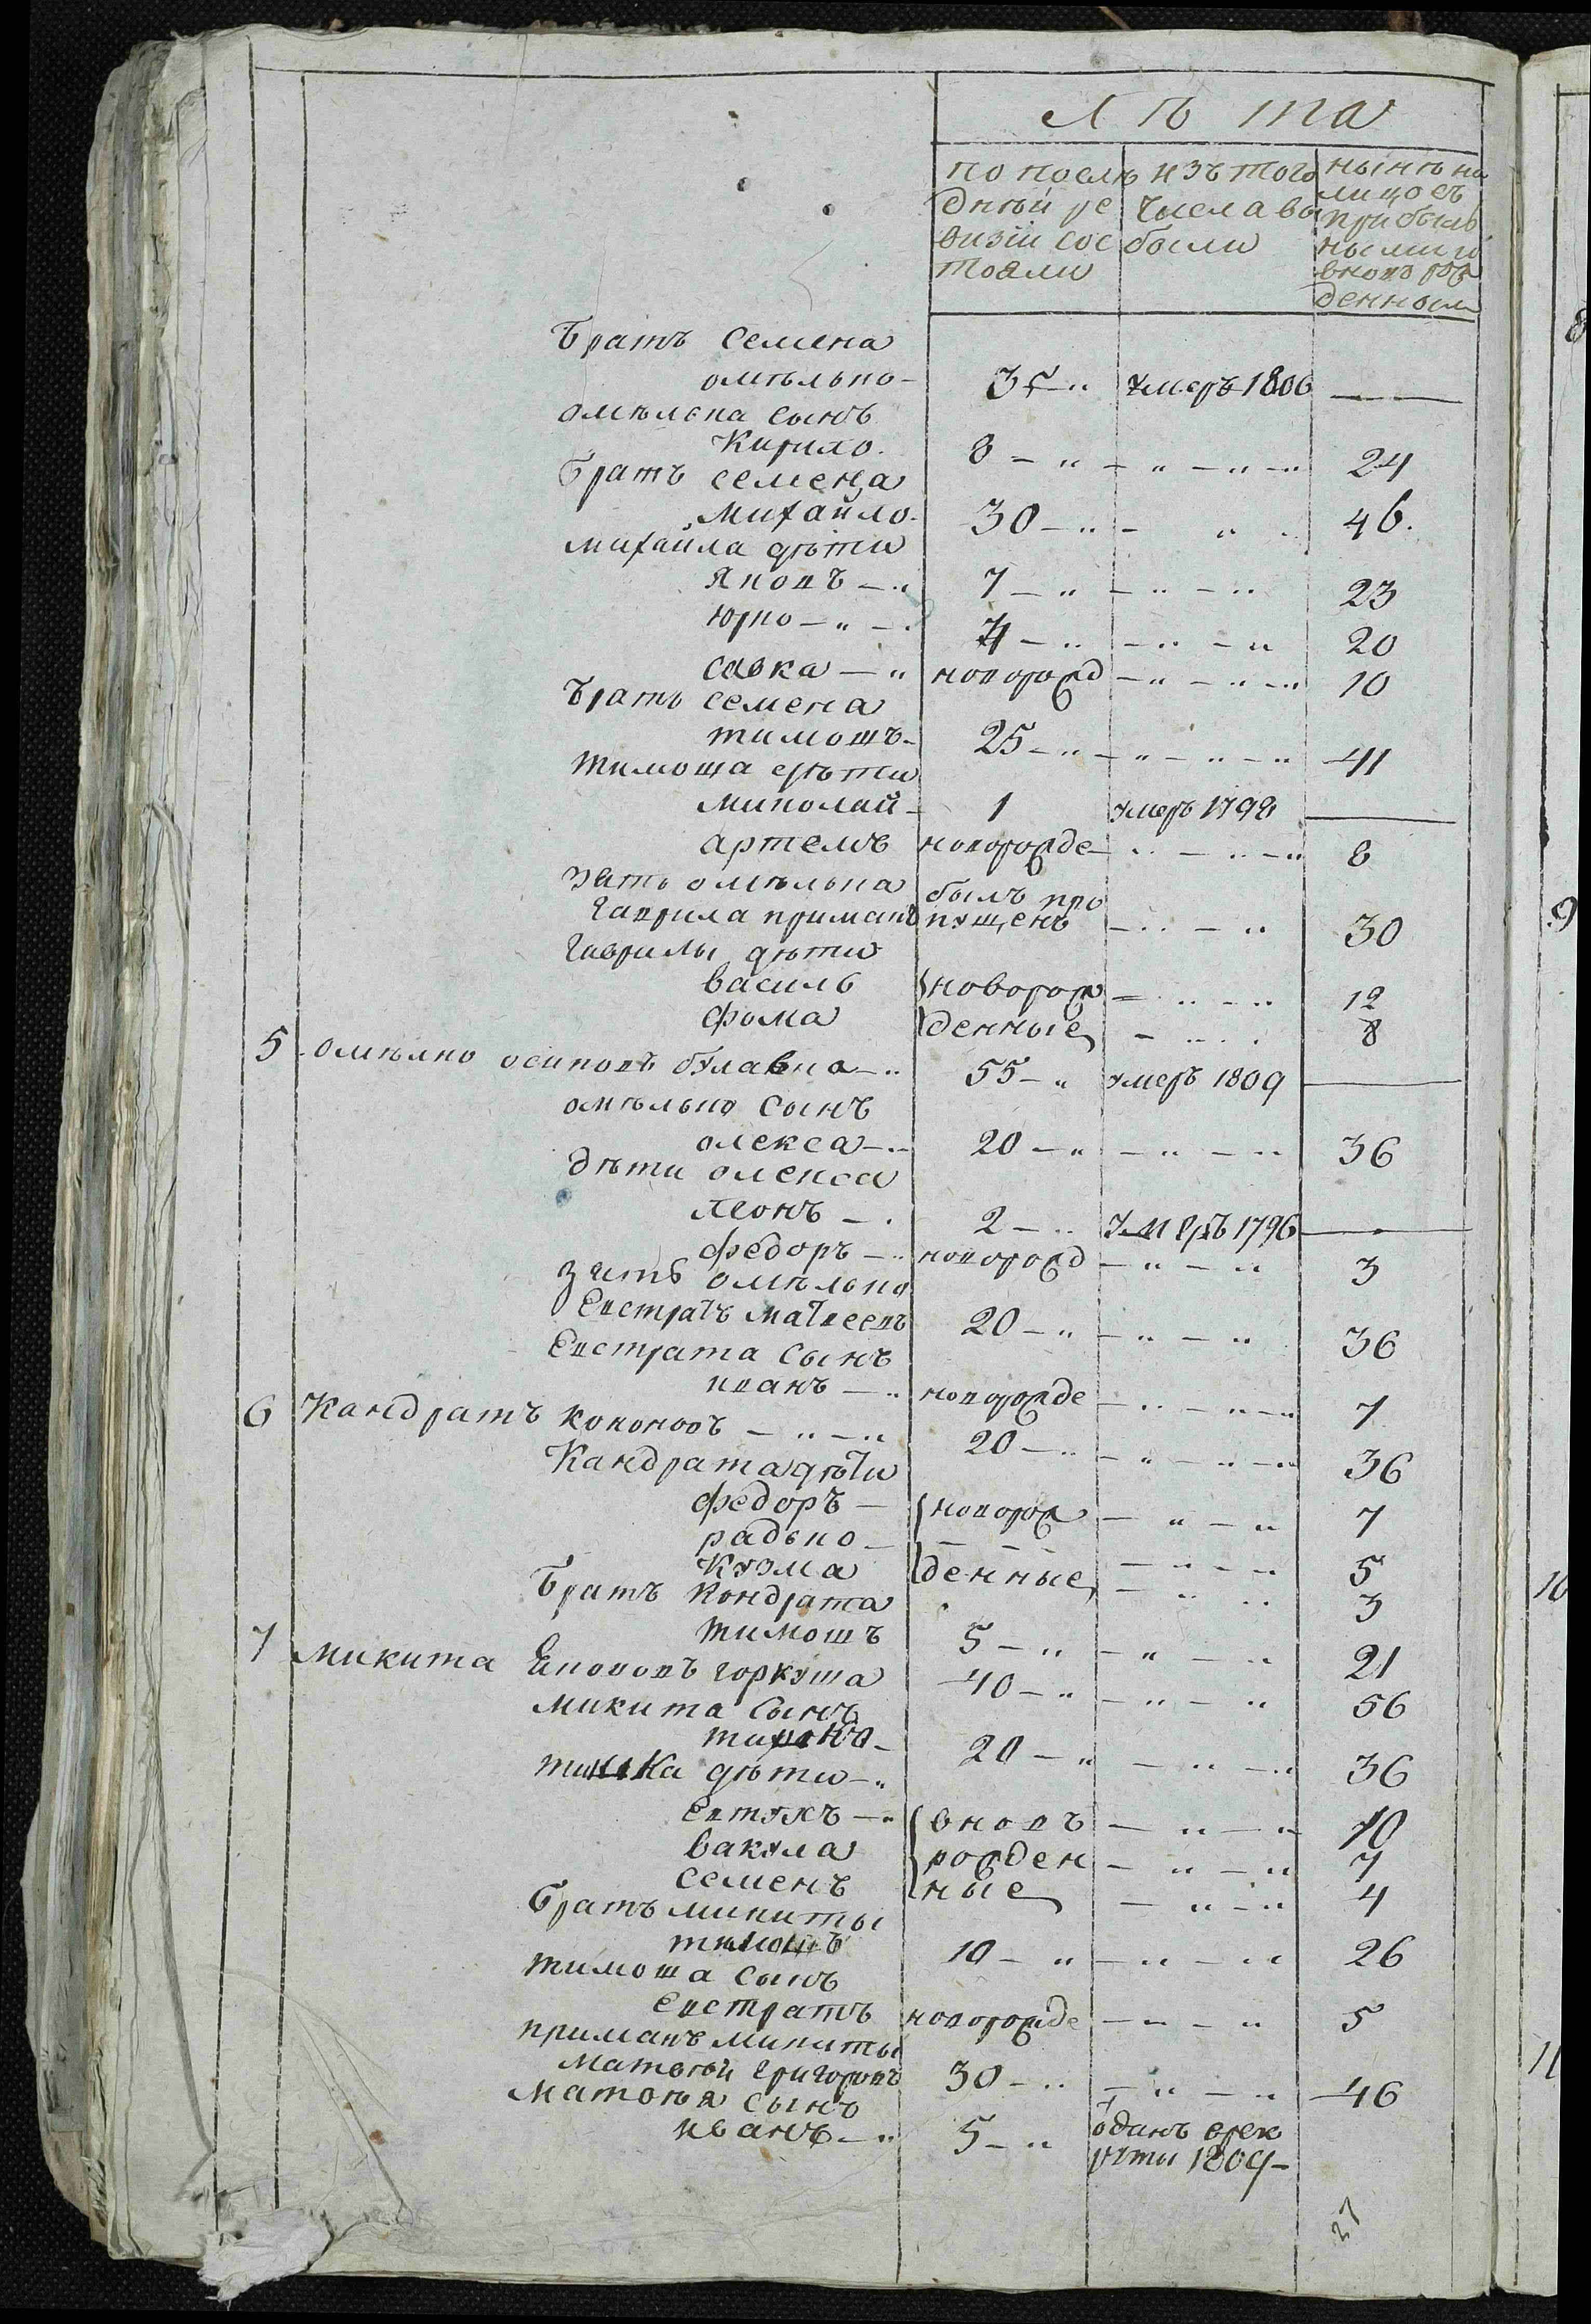 Лѣта
по послѣ изъ того нынѣ на
дней ре числа вы лицо съ
визіи сос были прибыль
тояли ными и
вновь рож
денными
братъ Семена
омелько - 35 - " умеръ 1806 —
омелька сынъ
Кирило. 8 - " - " - " - " 24
братъ семена
Михайло. 30 - " - " 46.
михайла дѣти
Яковъ - " 7 - " - " - " 23
Юрко - " - 4 - " - " - " 20
савка - " новорожд - " - " - " 10
братъ семена
тимошъ - 25 - " - " - " - " 41
тимоша дѣти
миколай - 1 умеръ 1798 —
артемъ новорожде - " - " - " 8
зять омелька былъ про
гаврила примакъ пущенъ - " - " 30
гаврилы дѣти
василь новорож - " - " 12
фома денные - " 8
5 омелко осиповъ булавка - " 55 - " умеръ 1809 —
омелько сынъ
олекса - " 20 - " - " - " 36
дѣти олекса
леонъ - 2 - " умеръ 1796 —
федоръ - " новорожд - " - " 3
зять омелько
Евстратъ матвеевъ 20 - " - " - " 36
Евстрата сынъ
иванъ - " новорожде - " - " - " 7
6 Кандратъ кононовъ - " - " 20 - " - " - " - " 36
Кандрата дѣти
федоръ - новорож - " - " 7
радько - - " - " 5
кузма денные - " 3
братъ Кондрата
тимошъ 5 - " - " - " 21
7 микита горкуша 40 - " - " - " 56
микита сынъ
20 - " - " - " 36
дѣти - "
Евтухъ - " вновь - " - " 10
вакула рожден - " - " 7
семенъ ные - " - " 4
братъ микиты
тимошъ 10 - " - " - " 26
тимоша сынъ
евстратъ новорожде - " - " 5
примакъ микиты
матвѣй григоровъ 30 - " - " - " 46
матвѣя сынъ
иванъ - " 5 - " отданъ в рек
руты 1809 -
27
8
9
10
11